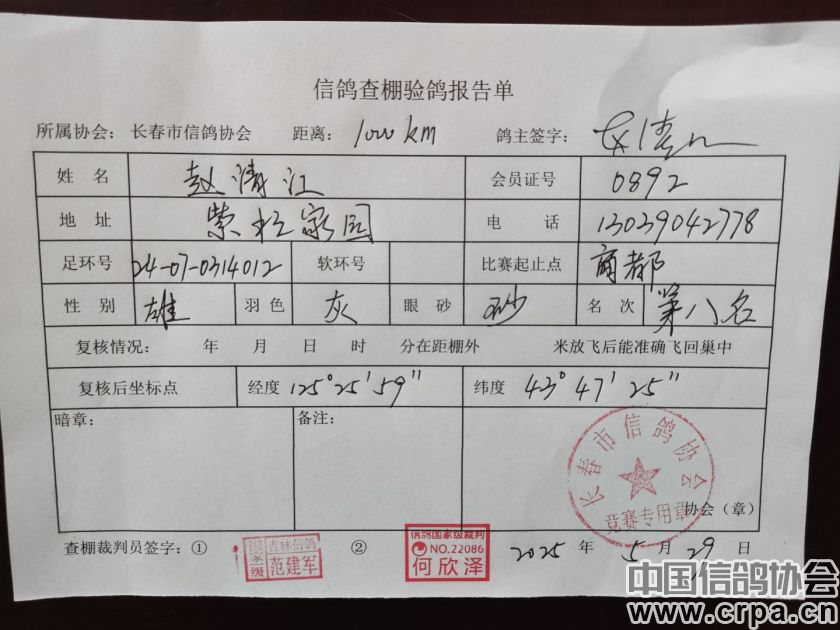 信鸽查棚验鸽报告单
所属协会： 长春市信鸽协会 距离： 1000 km 鸽主签字：
姓 名 赵清江 会员证号 0892
地 址 紫杉家园 电 话 13039042778
足环号 24-07-0314012 软环号 比赛起止点 商都
性 别 雄 羽 色 灰 眼 砂 砂 名 次 第八名
复核情况： 年 月 日 时 分在距棚外 米放飞后能准确飞回巢中
复核后坐标点 经度 125°25'59" 纬度 43°47'25"
暗章： 备注：
长春市信鸽协会
竞赛专用章
协会（章）
查棚裁判员签字：① 国家级 吉林信鸽 范建军 ② 信鸽国家级裁判 NO.22086 何欣泽 2025 年 5 月 29 日
中国信鸽协会
www.crpa.cn